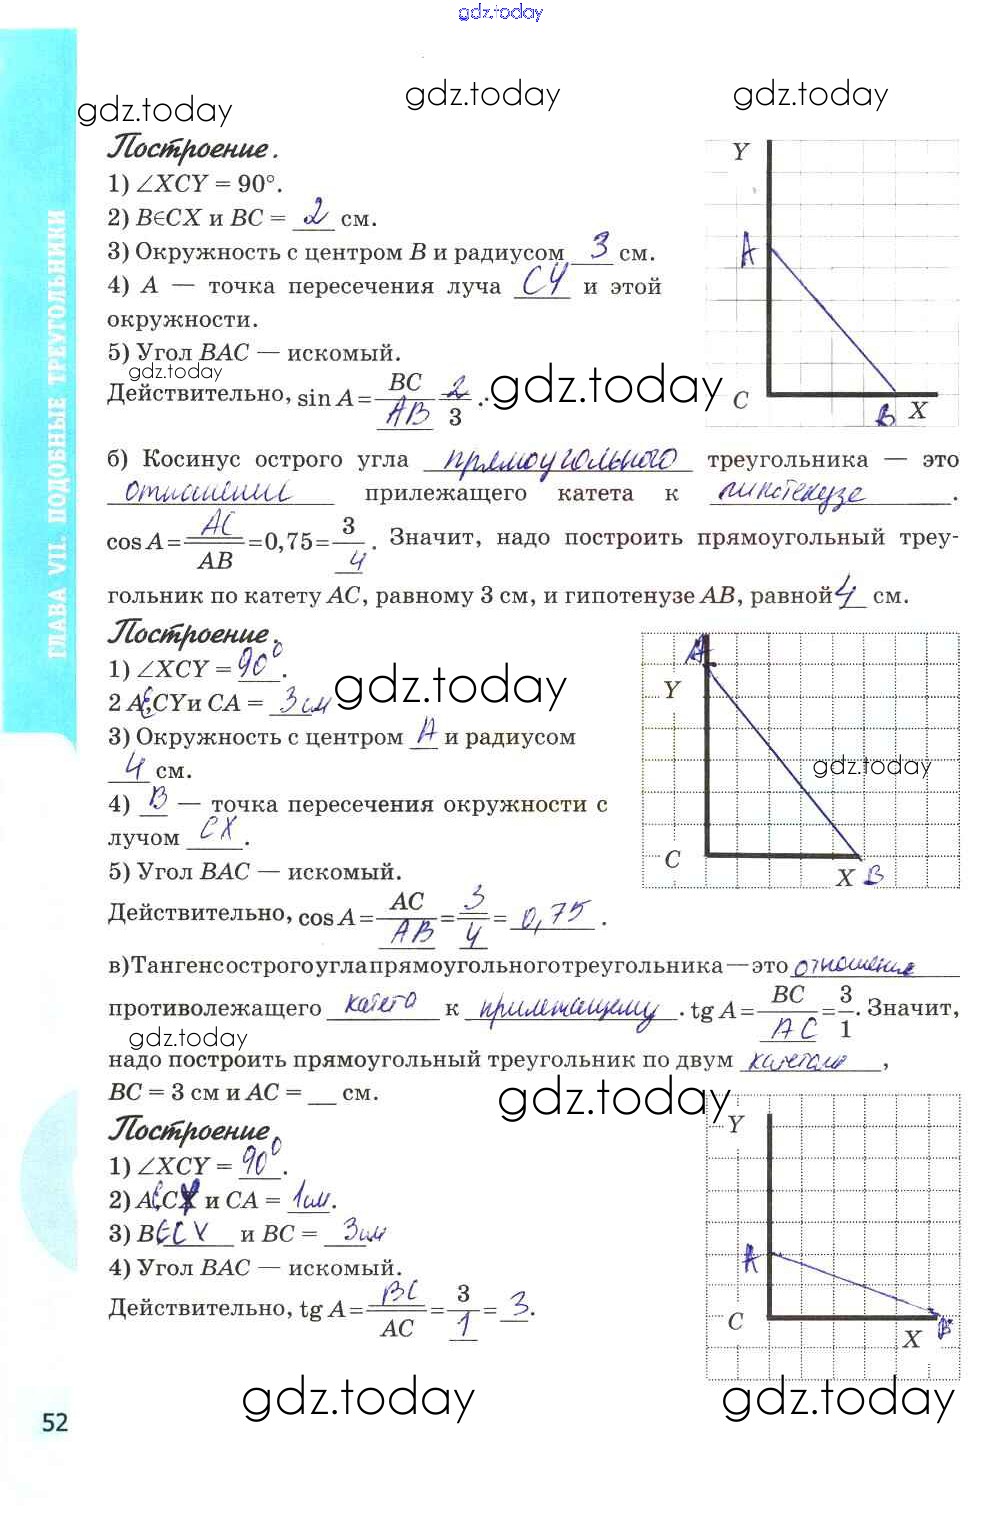 gdz.today
gdz.today gdz.today gdz.today
Построение.
1) ∠XCY = 90°.
2) B∈CX и BC = 2 см.
3) Окружность с центром B и радиусом 3 см.
4) A — точка пересечения луча CY и этой
окружности.
5) Угол BAC — искомый.
gdz.today
Действительно, sin A = BC/AB 2/3.
gdz.today
Y
A
C
B X
б) Косинус острого угла прямоугольного треугольника — это
отношение прилежащего катета к гипотенузе.
cos A = AC/AB = 0,75 = 3/4. Значит, надо построить прямоугольный треу-
гольник по катету AC, равному 3 см, и гипотенузе AB, равной 4 см.
Построение.
1) ∠XCY = 90°.
2 A∈CY и CA = 3 см
gdz.today
3) Окружность с центром A и радиусом
4 см.
4) B — точка пересечения окружности с
лучом CX.
5) Угол BAC — искомый.
Действительно, cos A = AC/AB = 3/4 = 0,75.
A
Y
gdz.today
C
X B
в) Тангенс острого угла прямоугольного треугольника — это отношение
противолежащего катета к прилежащему. tg A = BC/AC = 3/1. Значит,
gdz.today
надо построить прямоугольный треугольник по двум катетам,
BC = 3 см и AC = __ см.
gdz.today
Построение.
1) ∠XCY = 90°.
2) A∈CY и CA = 1см.
3) B∈CX и BC = 3см
4) Угол BAC — искомый.
Действительно, tg A = BC/AC = 3/1 = 3.
Y
A
C
X B
gdz.today gdz.today
52
ГЛАВА VII. ПОДОБНЫЕ ТРЕУГОЛЬНИКИ